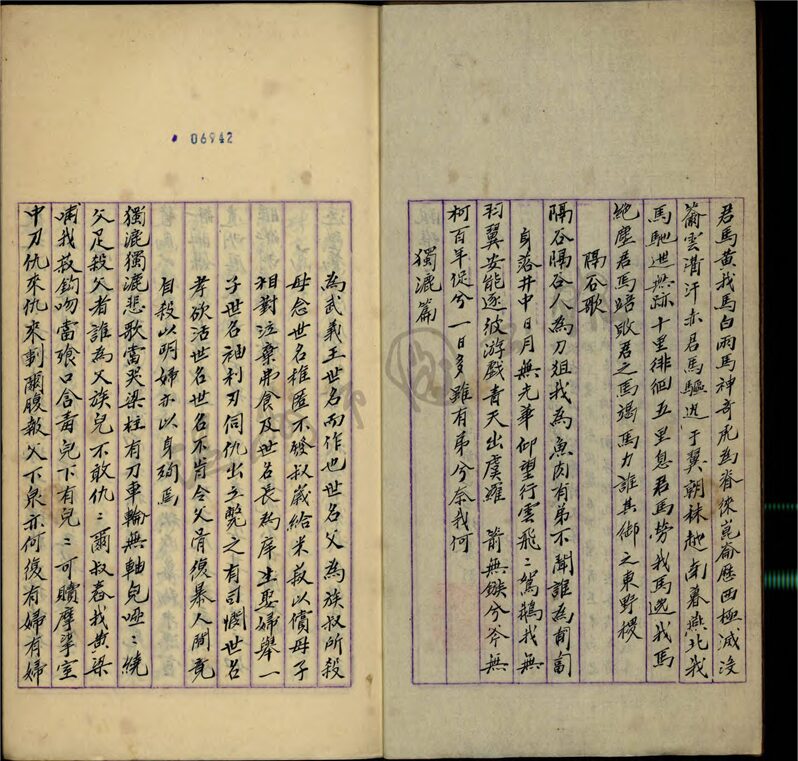 君馬黃我馬白兩馬神奇虎為脊徠崑崙歷西極滅沒
雲 汗赤君馬驅迅于翼朝秣越南暮燕北我
馬馳迸無跡十里徘徊五里息君馬勞我馬逸我馬
絕塵君馬踣敗君之馬竭馬力誰其御之東野稷
隔谷歌
隔谷隔谷人為刀俎我為魚肉有弟不聞誰為
身落井中日月無光華仰望行雲飛〻駕鵝我無
羽翼安能逐彼游戲青天出虞羅 箭無鏃兮斧無
柯百年促兮一日多雖有弟兮奈我何
獨漉篇
06942
為武義王世名而作也世名父為族叔所殺
母念世名稚匿不發叔歲給米菽以償母子
相對泣棄弗食及世名長為庠生娶婦舉一
子世名袖利刃伺仇出立斃之有司憫世名
孝欲活世名世名不肯令父骨復暴人間竟
自殺以明婦亦以身殉焉
獨漉獨漉悲歌當哭梁柱有刀車輪無軸兒啞〻繞
父足殺父者誰為父族兒不敢仇〻爾叔舂我黃粱
哺我菽鉤吻當飧口含毒兒下有兒〻可贖摩挲室
中刃仇來仇來剚爾腹報父下泉亦何復有婦有婦